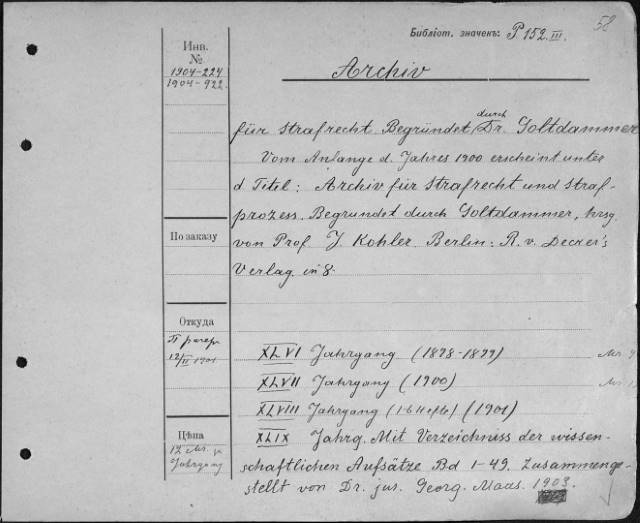 58
Библіот. значекъ: P 152.III.
Инв.
№
1904-224
1904-922.
Archiv
für Strafrecht. Begründet durch Dr. Goltdammer
Vom Anfange d. Jahres 1900 erscheint unter
d Titel: Archiv für Strafrecht und Straf-
prozess. Begründet durch Goltdammer, hrsg.
По заказу
von Prof. J. Kohler. Berlin: R. v. Decker's
Verlag. in 8.
Откуда
XLVI Jahrgang (1898-1899)
XLVII Jahrgang (1900)
XLVIII Jahrgang (1901)
Цѣна
XLIX Jahrg. Mit Verzeichniss der wissen-
12 Mr.
Jahrgang
schaftlichen Aufsätze Bd 1-49. Zusammenge-
stellt von Dr. jus. Georg. Maas. 1903.